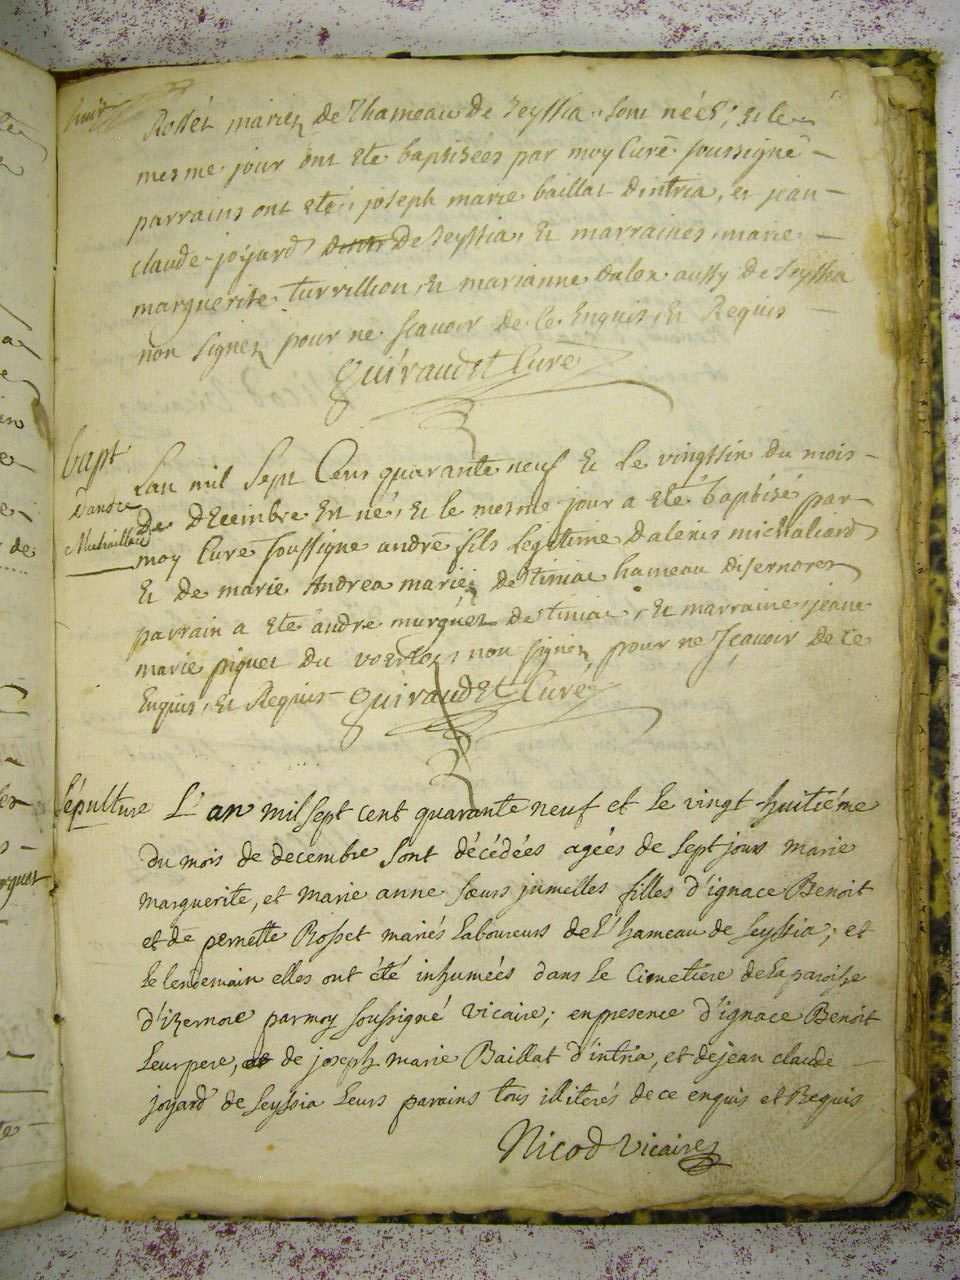 Suitte
Rosset mariez de l'hameau de Seyssia, sont néés; et le
mesme jour ont ete baptisées par moy Curé soussigné
parrains ont eté, joseph marie baillat d'intria, et jean
claude joyard de Seyssia, et marraines, marie
marguerite turvillion, et marianne balex aussy de Seyssia
non signez pour ne scavoir de ce Enquis, et Requis
Guiraudet Curé
bapt
d'andre
Michaillard
Lan mil sept Cens quarante neuf et le vingtsix du mois
de decembre est né, et le mesme jour a eté baptisé par
moy Curé soussigne andré fils legitime d'alexis michaliard
et de marie Andrea mariéz de tiniac hameau disernorez
parrain a ete andre murguez de tiniac, et marraine, jeane
marie piquet du voerle, non signéz pour ne scavoir de ce
Enquis, et Requis Guiraudet Curé
sépulture L'an mil sept cent quarante neuf et le vingt-huitiéme
du mois de decembre sont décédées agées de sept jours marie
marguerite, et marie anne sœurs jumelles filles d'ignace Benoit
et de pernette Rosset mariés Laboureurs de L'hameau de Seyssia; et
le lendemain elles ont été inhumées dans le Cimetiere de la paroisse
d'izernore par moy soussigné vicaire; en presence d'ignace Benoit
Leur pere, de joseph marie Baillat d'intria, et de jean claude
joyard de Seyssia Leurs parains tous illiterés de ce enquis et Requis
Nicod vicaire